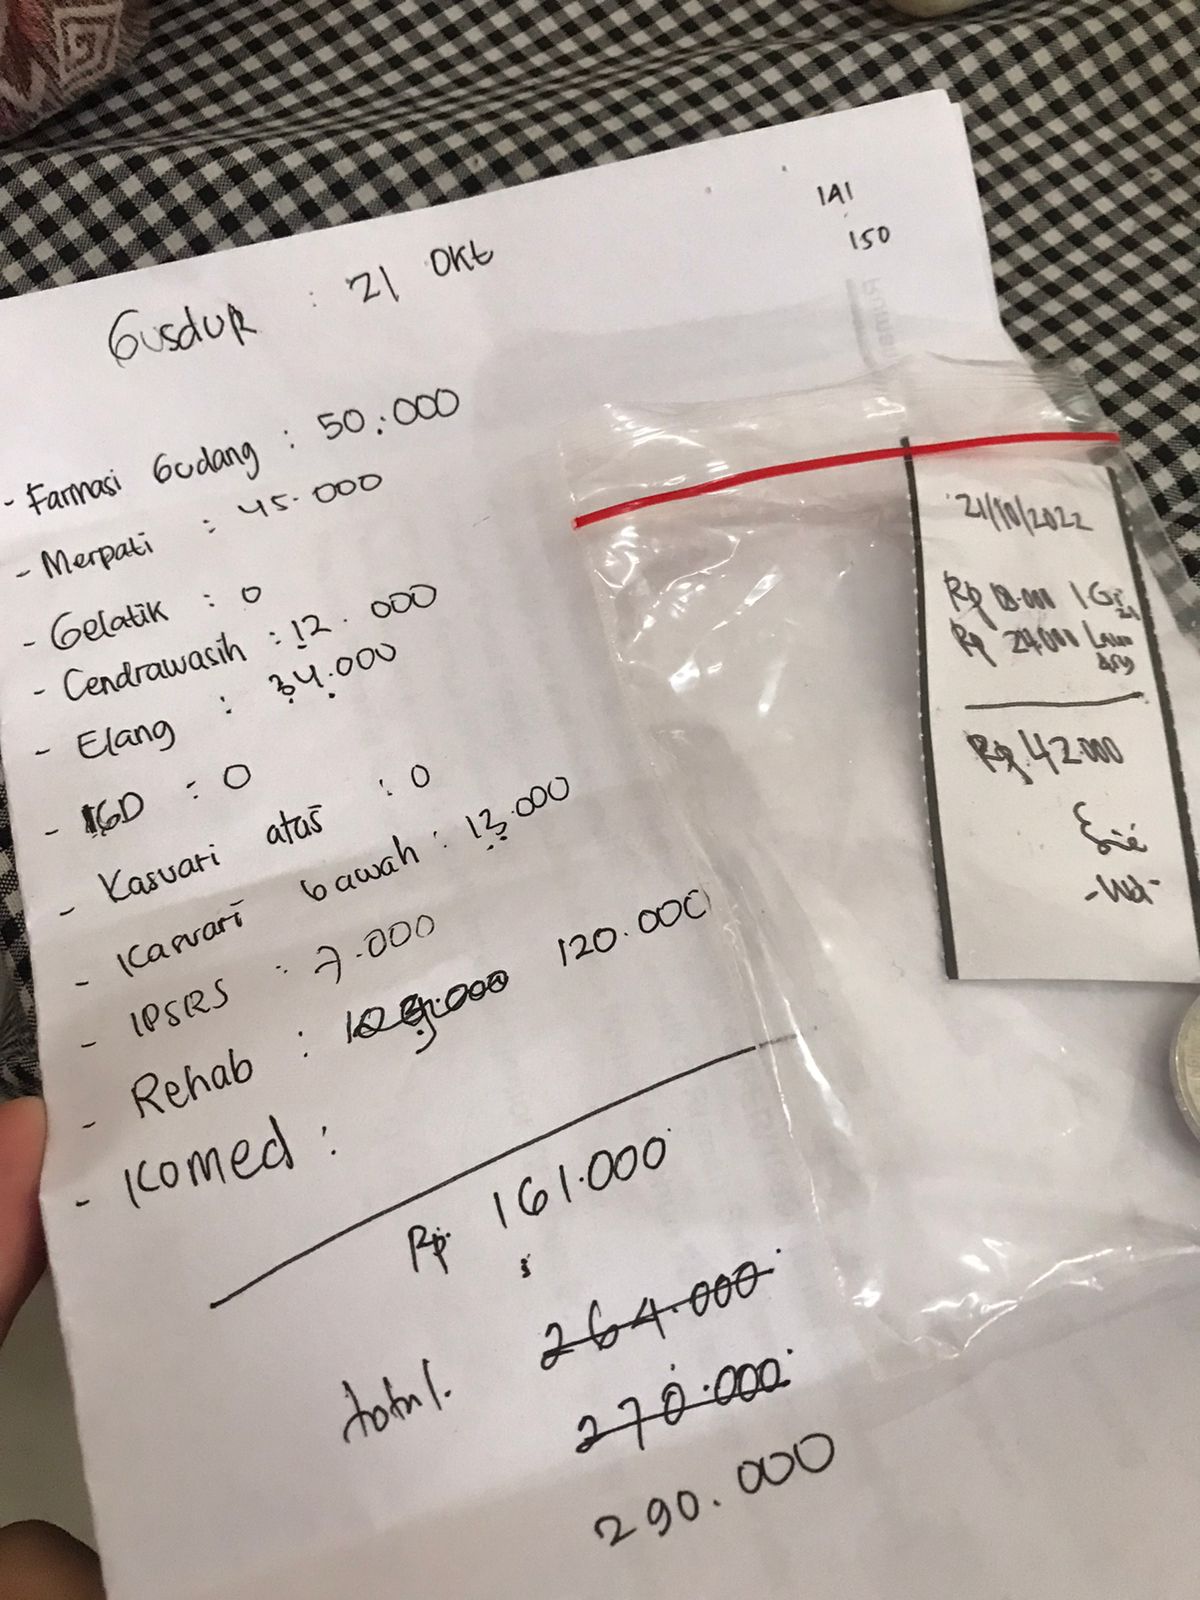 Gusdur : 21 Okt
141
150
- Farmasi Gudang : 50.000
- Merpati : 45.000
- Gelatik : 0
- Cendrawasih : 12.000
- Elang : 34.000
- IGD : 0
- Kasuari atas : 0
- Kasuari bawah : 13.000
- IPSRS : 7.000
- Rehab : 120.000
- Komed :
Rp 161.000
total. 264.000
270.000
290.000
21/10/2022
Rp 18.000 IGizi
Rp 24.000
Rp 42.000